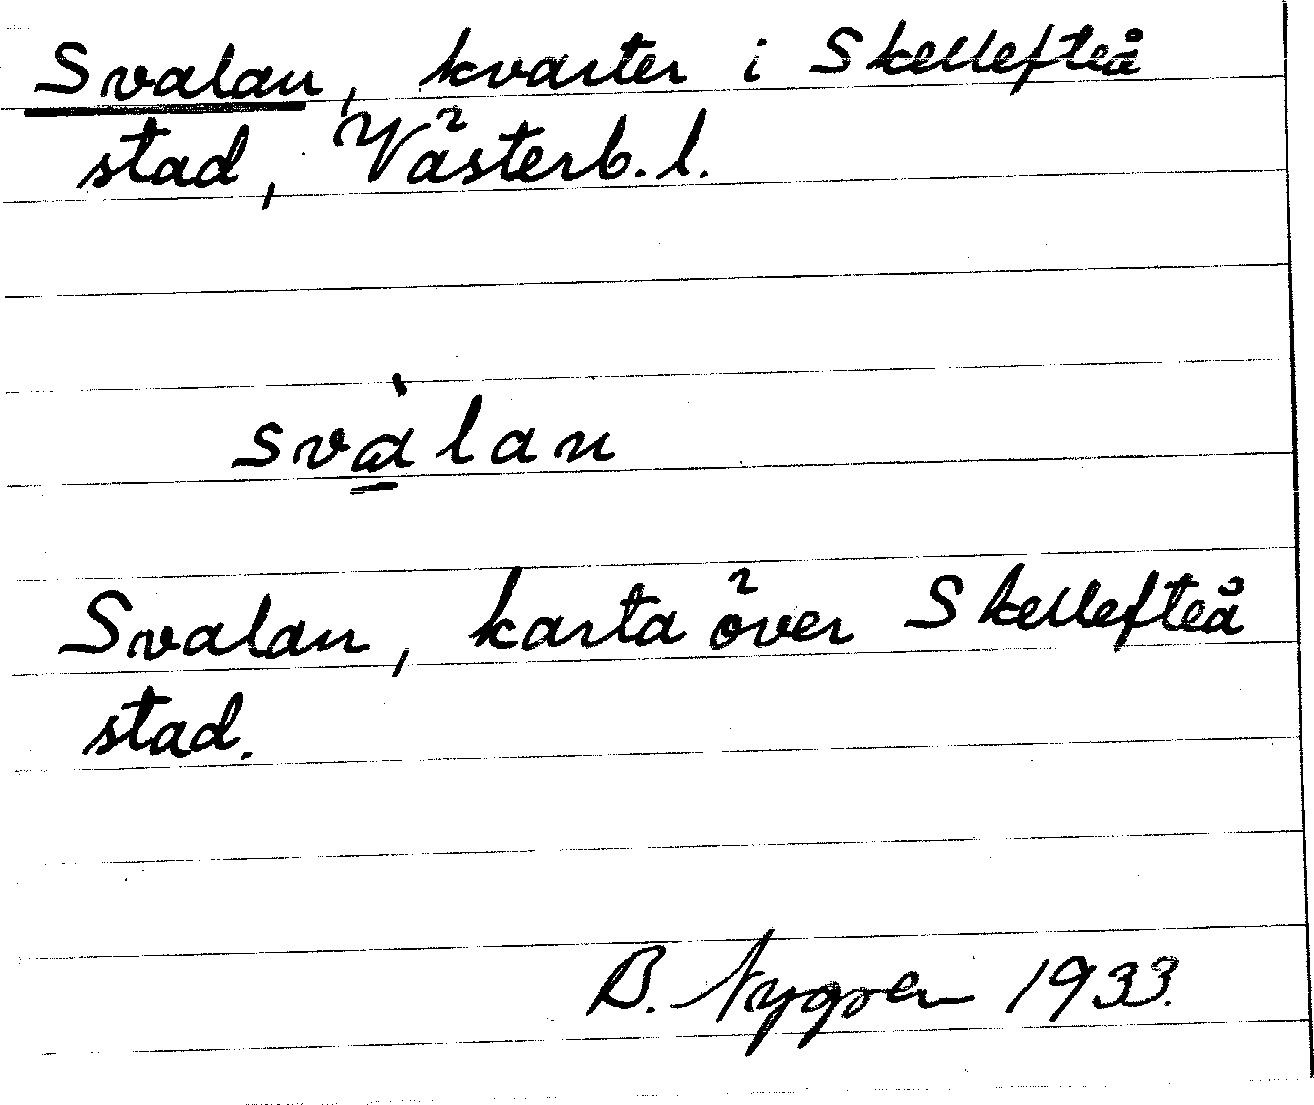 Svalan, kvarter i Skellefteå
stad, Västerb. l.
svàlan
Svalan, karta över Skellefteå
stad.
B. Nygren 1933.